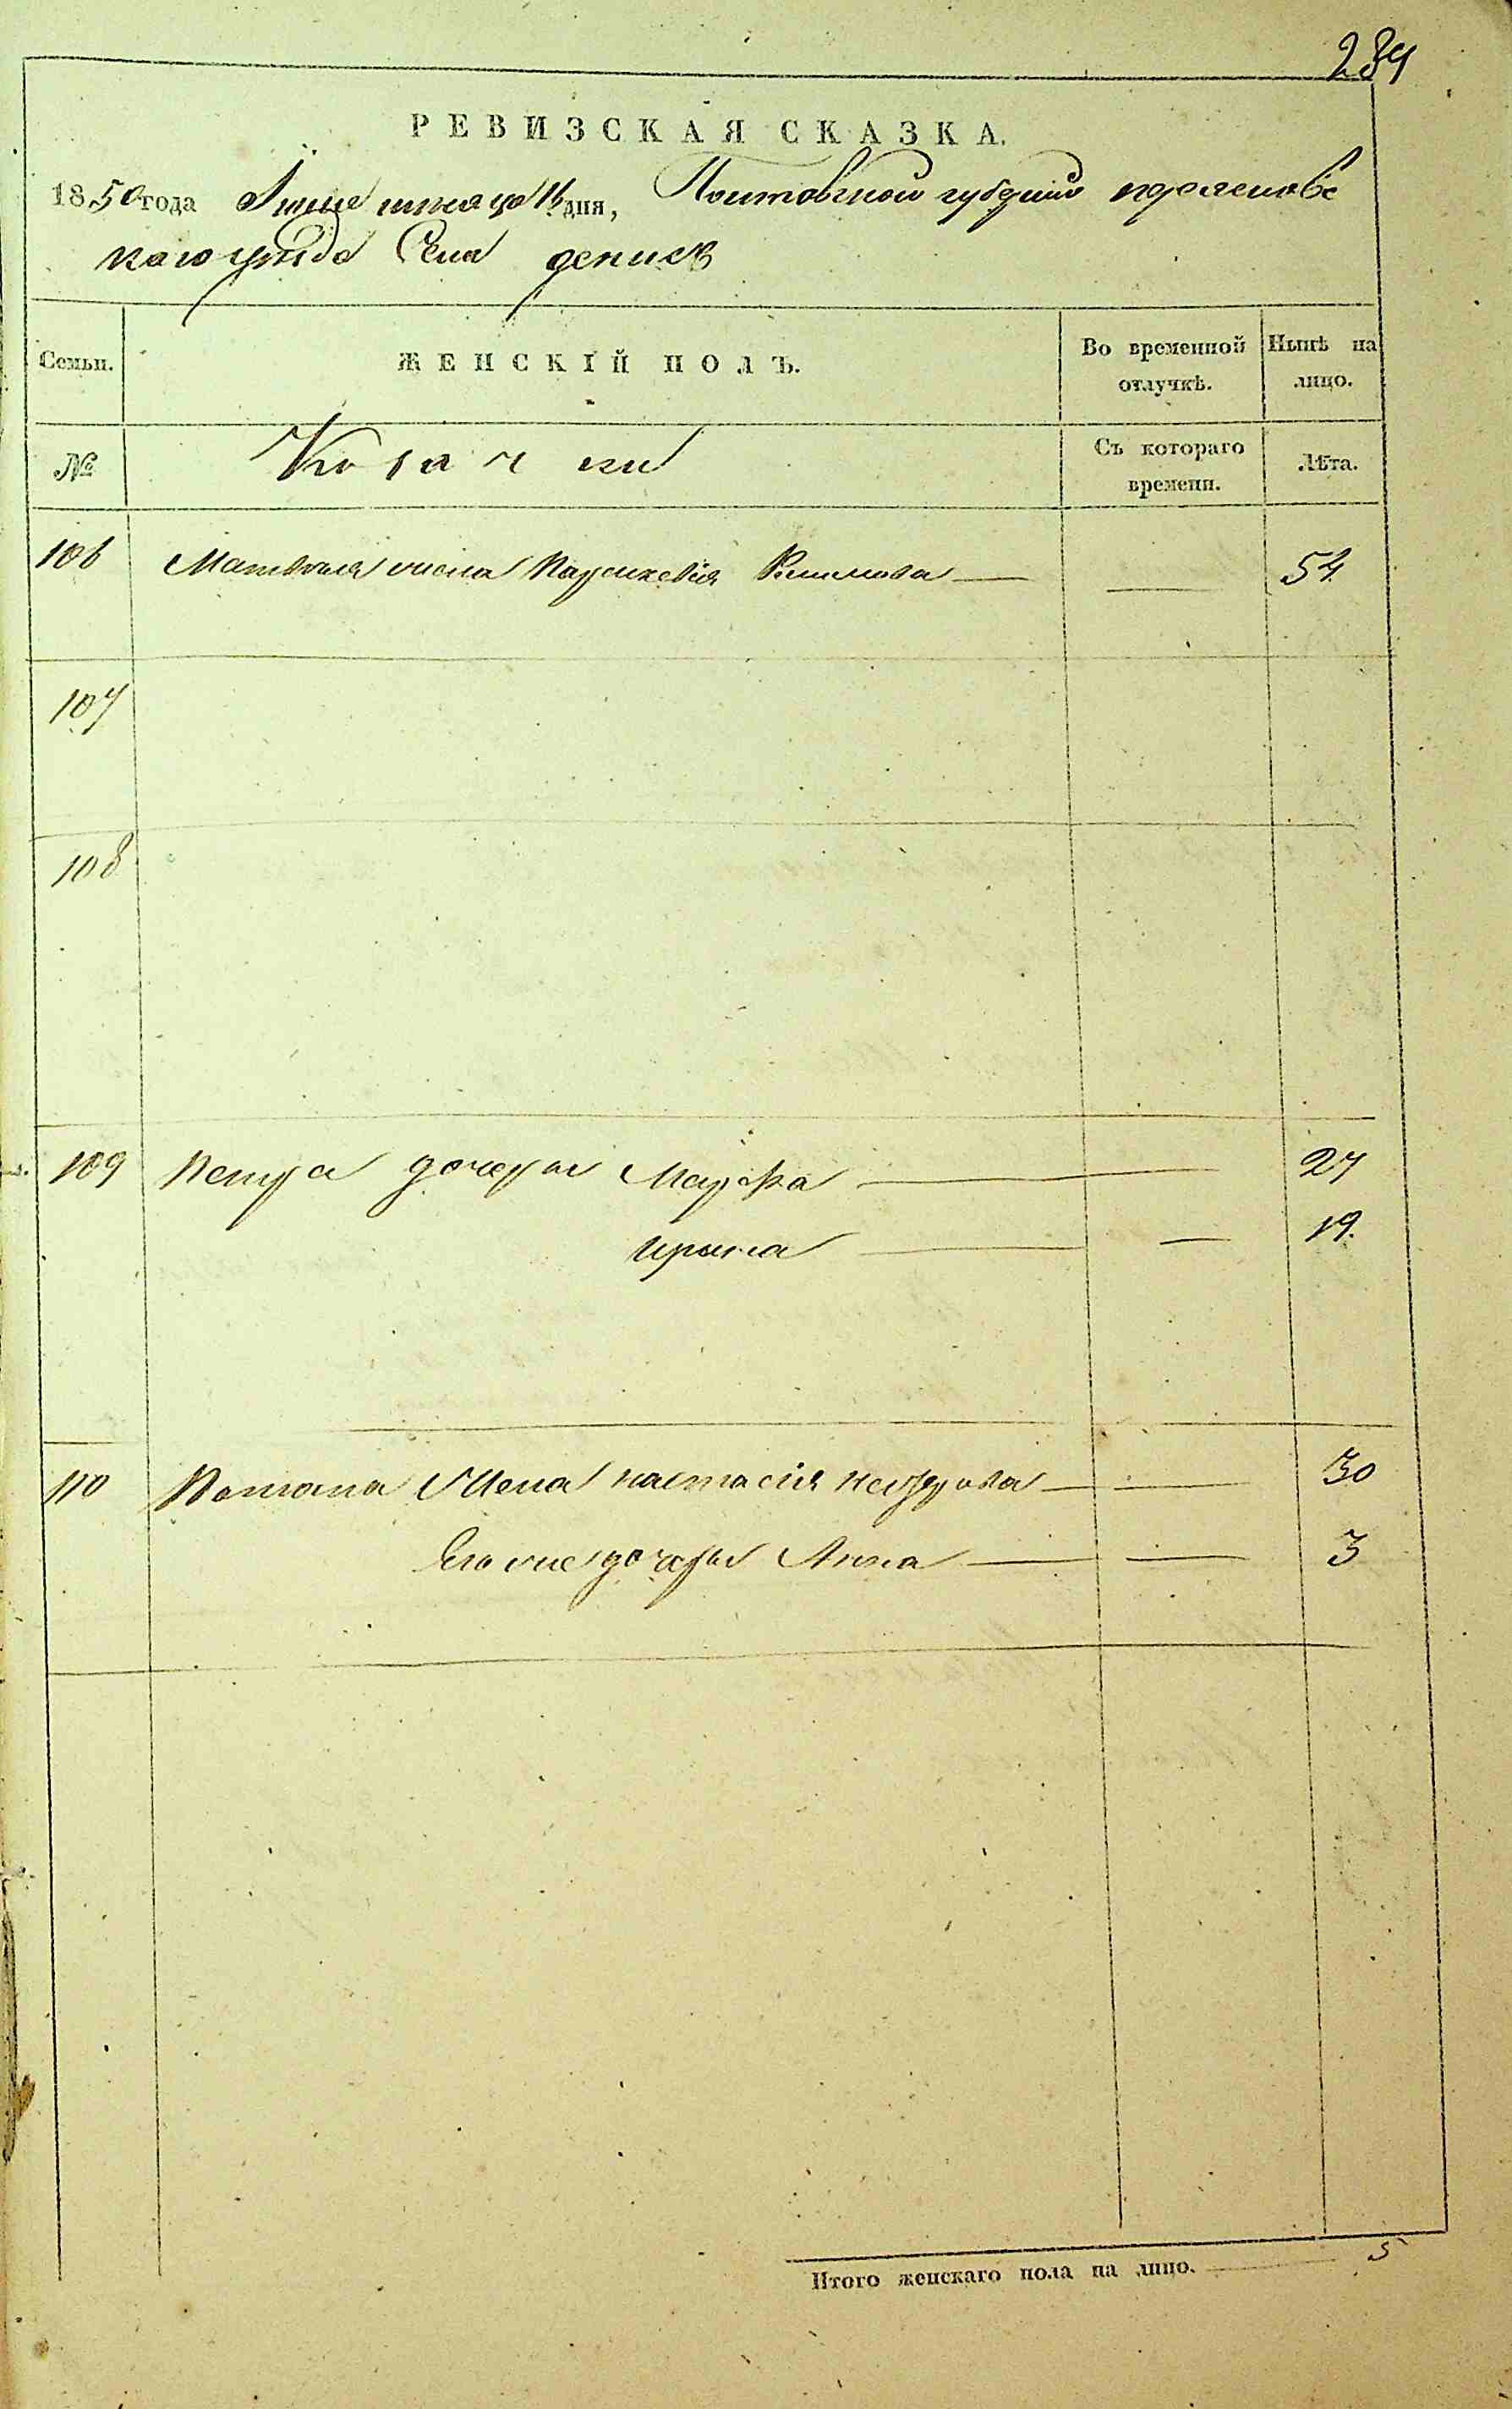 284
РЕВИЗСКАЯ СКАЗКА.
1850 года Іюня месяца 16 дня, Полтавской губерніи
каго уезда Села денисъ
Семьи.
ЖЕНСКІЙ ПОЛЪ.
Во временной отлучкѣ.
Нынѣ на лицо.
№
Козачки
Съ котораго времени.
Лѣта.
106 Матвѣя жена Параскевія — — 54
107
108
109 Петра дочери Марфа — 27
ирина — — 19.
110 Романа Жена настасія — — 30
Его же дочеръ Анна — — 3
Итого женскаго пола на лицо. — 5